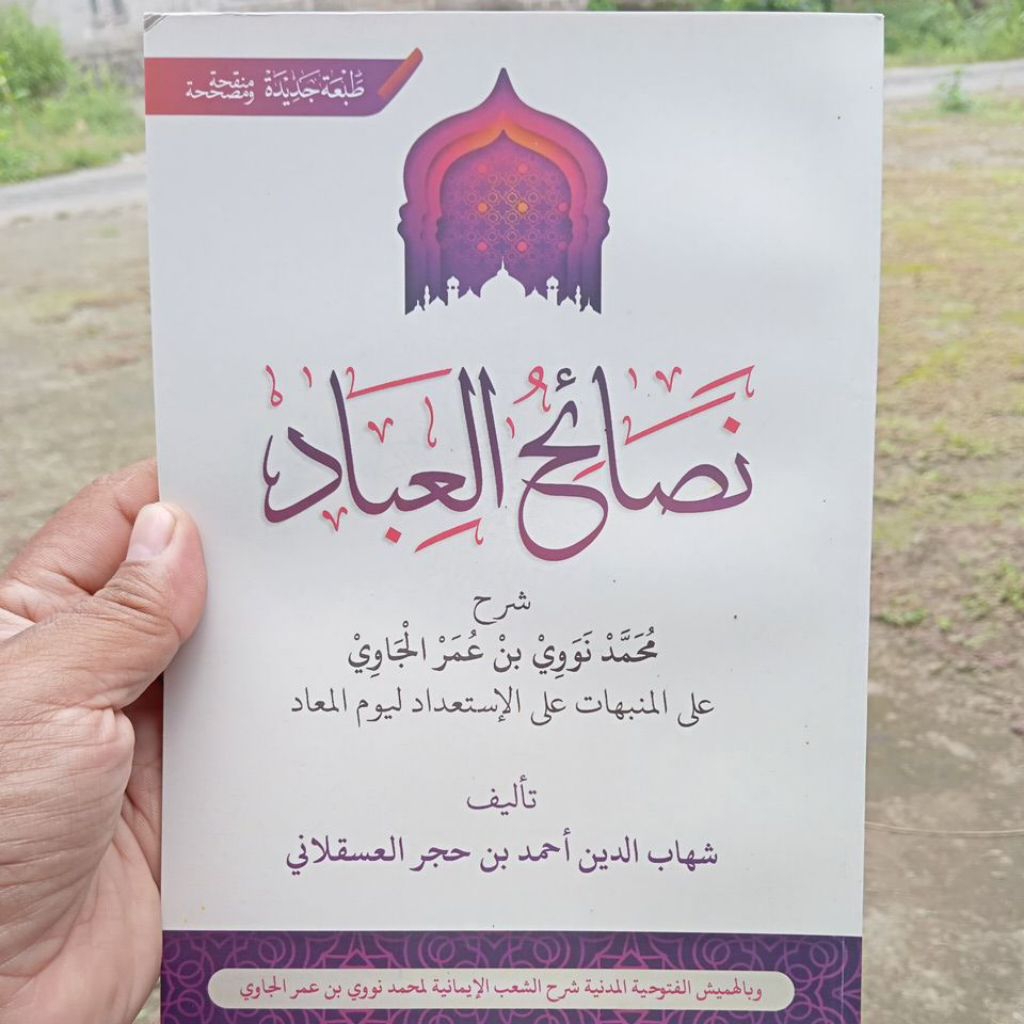 طَبْعَة جَدِيْدَة منقحة ومصححة
نَصَائِحُ الْعِبَادْ
شرح
مُحَمَّدْ نَوَوِيْ بنْ عُمَرْ الْجَاوِيْ
على المنبهات على الإستعداد ليوم المعاد
تأليف
شهاب الدين أحمد بن حجر العسقلاني
وبالهميش الفتوحية المدنية شرح الشعب الإيمانية لمحمد نووي بن عمر الجاوي